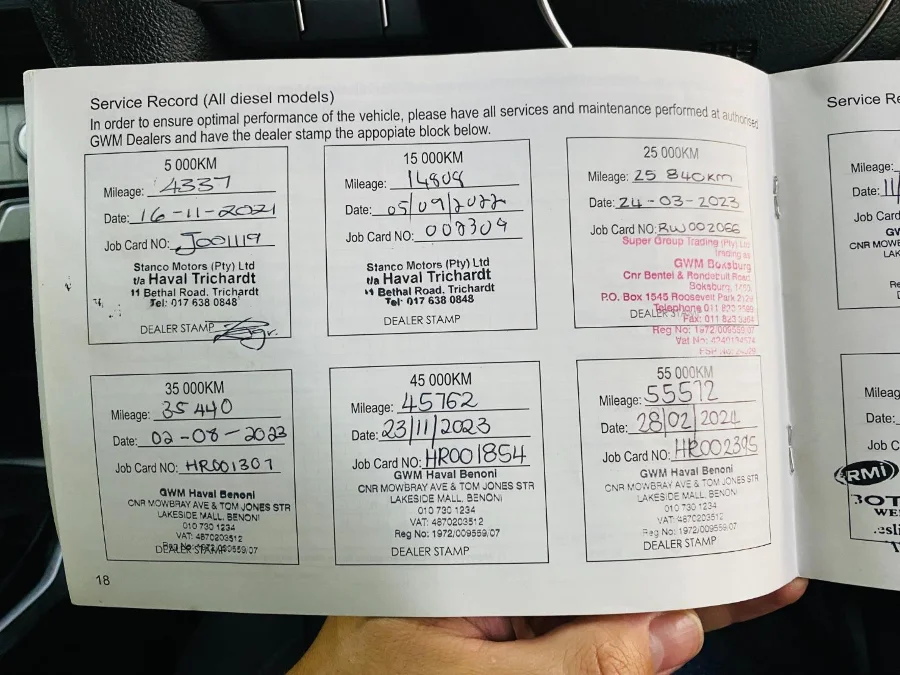 Service Record (All diesel models)
In order to ensure optimal performance of the vehicle, please have all services and maintenance performed at authorised
GWM Dealers and have the dealer stamp the appopiate block below.
5 000KM
Mileage: 4337
Date: 16-11-2021
Job Card NO: J001119
Stanco Motors (Pty) Ltd
t/a Haval Trichardt
11 Bethal Road. Trichardt
Tel: 017 638 0848
DEALER STAMP
15 000KM
Mileage: 14808
Date: 05/09/2022
Job Card NO:
Stanco Motors (Pty) Ltd
t/a Haval Trichardt
11 Bethal Road. Trichardt
Tel: 017 638 0848
DEALER STAMP
25 000KM
Mileage: 25 840km
Date: 24-03-2023
Job Card NO: RW002066
Super Group Trading (Pty) Ltd
Trading as
GWM Boksburg
Cnr Bentel & Rondebult Road
Boksburg,
P.O. Box 1545 Roosevelt Park 2129
Telephone 011 823
DEALER
Fax: 011 823
Reg No: 1972/009559/07
Vat No:
35 000KM
Mileage: 35 440
Date: 02-08-2023
Job Card NO: HR001307
GWM Haval Benoni
CNR MOWBRAY AVE & TOM JONES STR
LAKESIDE MALL. BENONI
010 730 1234
VAT: 4870203512
Reg No: 1972/009559/07
DEALER STAMP
45 000KM
Mileage: 45762
Date: 23/11/2023
Job Card NO: HR001854
GWM Haval Benoni
CNR MOWBRAY AVE & TOM JONES STR
LAKESIDE MALL. BENONI
010 730 1234
VAT: 4870203512
Reg No: 1972/009559/07
DEALER STAMP
55 000KM
Mileage: 55572
Date: 28/02/2024
Job Card NO: HR002395
GWM Haval Benoni
CNR MOWBRAY AVE & TOM JONES STR
LAKESIDE MALL. BENONI
010 730 1234
VAT: 4870203512
Reg No: 1972/009559/07
DEALER STAMP
18
Service Re
Mileage:
Date: 11/
Job Card
GW
CNR MOWB
LAK
Re
Mileag
Date:
Job C
RMI
BOT
WE
.esli